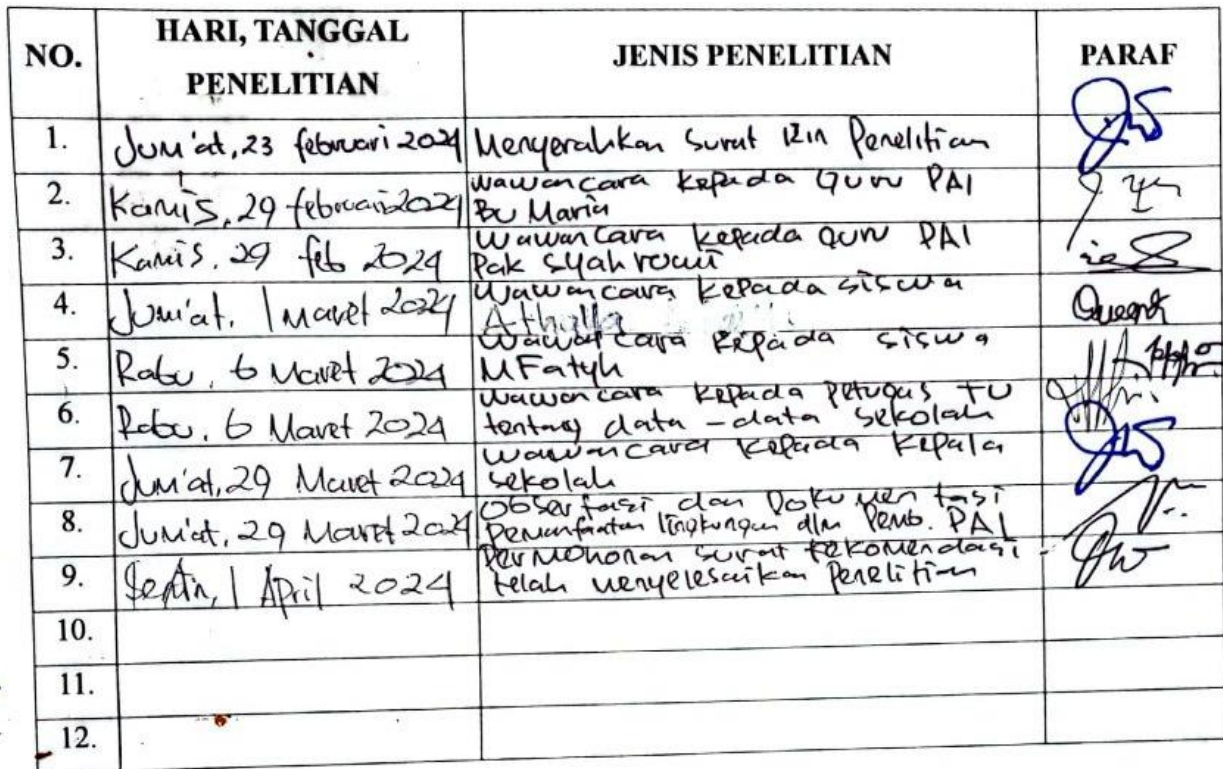 NO.
HARI, TANGGAL
PENELITIAN
JENIS PENELITIAN
PARAF
1. Jum'at, 23 februari 2024 Menyerahkan Surat Izin Penelitian
2. Kamis, 29 februari 2024 wawancara kepada Guru PAI
Bu Maria
3. Kamis, 29 feb 2024 wawancara kepada Guru PAI
Pak Syahroni
4. Jum'at, 1 Maret 2024 Wawancara kepada siswa
Athalla
5. Rabu, 6 Maret 2024 wawancara kepada siswa
M Fatyh
6. Rabu, 6 Maret 2024 wawancara kepada petugas TU
tentang data-data sekolah
7. Jum'at, 29 Maret 2024 wawancara kepada kepala
sekolah
8. Jum'at, 29 Maret 2024 Obserfasi dan Dokumentasi
Pemanfaatan lingkungan dlm Pemb. PAI
9. Senin, 1 April 2024 Permohonan surat rekomendasi
telah menyelesaikan Penelitian
10.
11.
12.